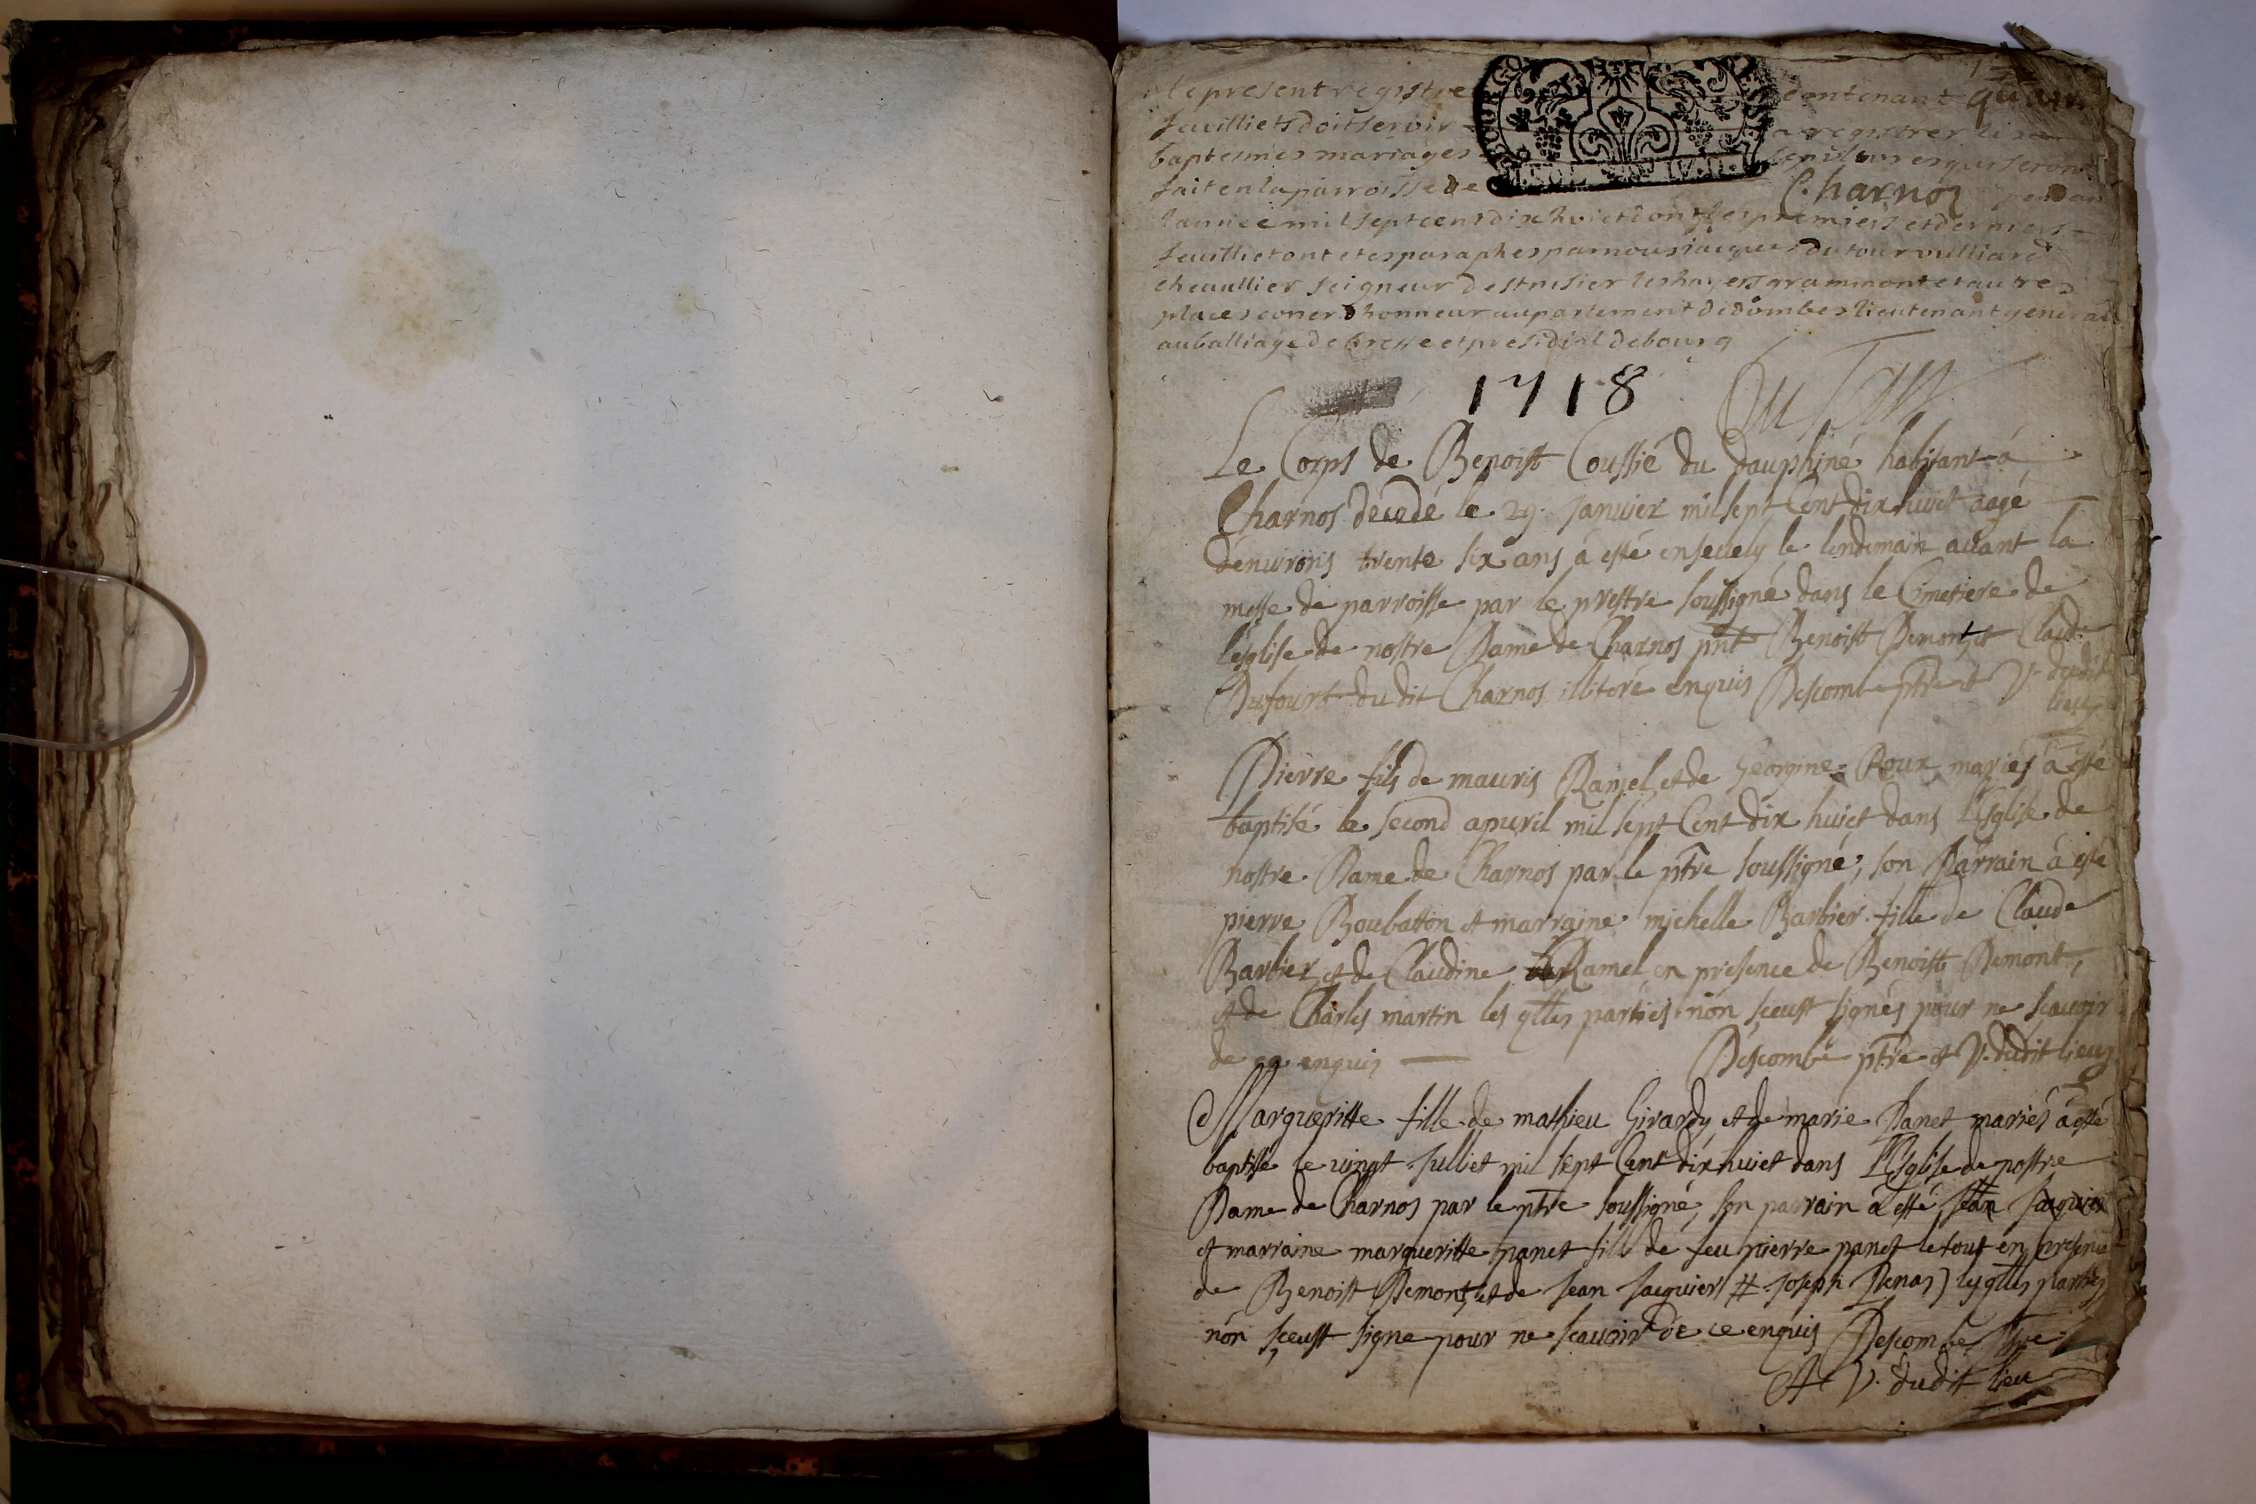 le present registre contenant quatre
feuilliets doit servir a registrer les
baptesmes mariages sepultures qui seront
fait en la parroisse de Charnoz pendan
lannee mil sept cens dix huict dont les premiers et derniers
feuillietont etes paraphes par nous jacques du tour vulliard
chevallier seigneur de st nisier grammont et autres
places coner d honneur au parlement de dombes lieutenant general
au balliage de bresse et presidial de bourg
1718 Du Tour
Le Corps de Benoist Coussié du dauphiné habitant á
Charnos décédé le 29. Janvier mil sept Cent dix huict aagé
d'environs trente six ans á esté ensevely le lendemain avant la
messe de parroisse par le prestre soussigné dans le Cimetiere de
l'esglise de nostre Dame de Charnos pnt Benoist Demont, et Claude
Dufour dudit Charnos illitere enquis Descombe ptre et V. dudit
lieu
Pierre fils de mauris Ramel et de Georgine Roux mariés á esté
baptisé le second apvril mil sept Cent dix huict dans l'Esglise de
nostre Dame de Charnos par le ptre soussigné, son Parrain á esté
pierre Boubatton et marraine michelle Barbier fille de Claude
Barbier et de Claudine Ramel en presence de Benoist Demont,
et de Charles martin les qlles parties nön sceust signés pour ne scavoir
de ce enquis Descombe ptre et V. dudit lieu
Margueritte fille de mathieu Girardy et de marie Panet mariés á esté
baptise le vingt Julliet mil sept Cent dix huict dans l'Esglise de nostre
Dame de Charnos par le ptre soussigné, son parrain á esté Jean Jaquier
et marraine margueritte panet fille de feu pierre panet le tout en presence
de Benoist Demont, et de Jean Jacquier # Joseph Penas) les qlles parties
nön sceust signe pour ne scavoir de ce enquis Descombe ptre
et V. dudit lieu